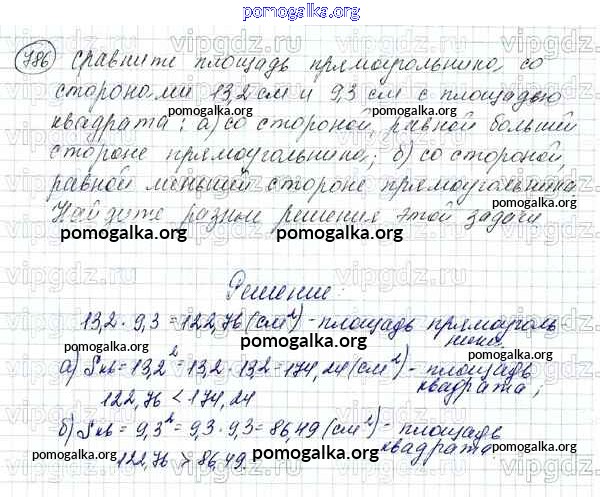 pomogalka.org
786 Сравните площадь прямоугольника со
сторонами 13,2 см и 9,3 см с площадью
квадрата: а) со стороной, равной большей
стороне прямоугольника; б) со стороной,
равной меньшей стороне прямоугольника
Найдите разные решения этой задачи
pomogalka.org pomogalka.org pomogalka.org
Решение:
13,2 · 9,3 = 122,76 (см²) - площадь прямоуголь
ника
а) Sкв = 13,2² = 13,2 · 13,2 = 174,24 (см²) - площадь
квадрата;
122,76 < 174,24
б) Sкв = 9,3² = 9,3 · 9,3 = 86,49 (см²) - площадь
квадрата.
122,76 > 86,49.
pomogalka.org pomogalka.org pomogalka.org